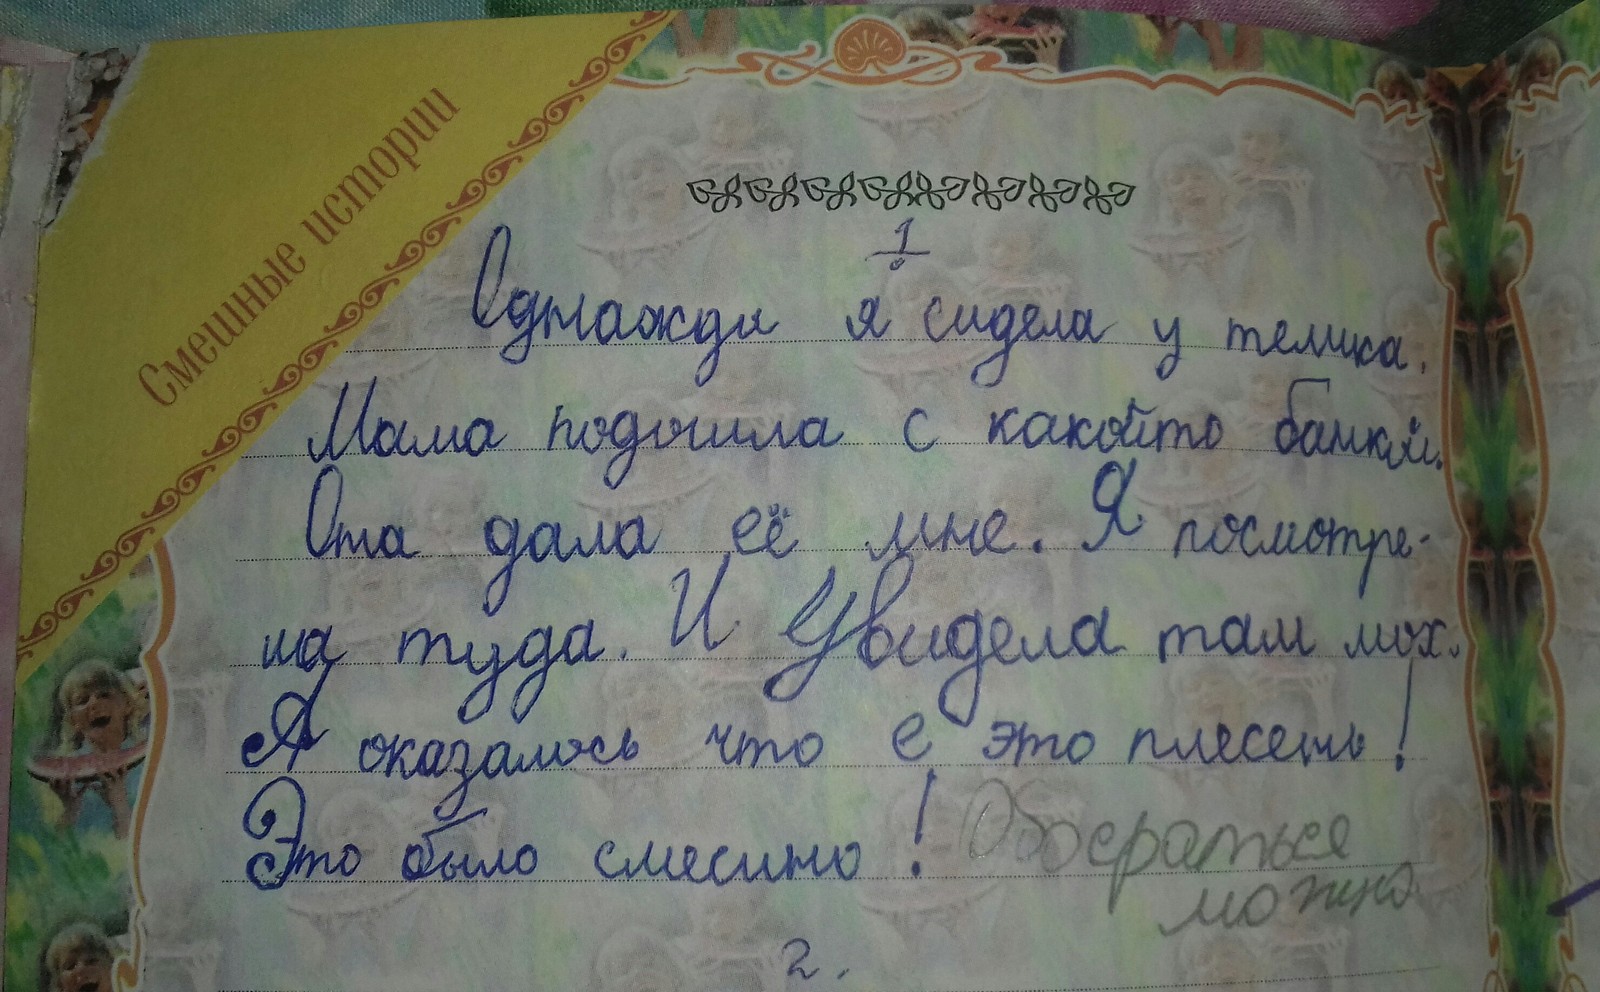 Смешные истории
1
Однажди я сидела у телика.
Мама подошла с какойто банкой.
Она дала её мне. Я посмотре-
ла туда. И Увидела там мох.
А оказалось что е это плесень!
Это было смешно! Обосраться
можно
2.